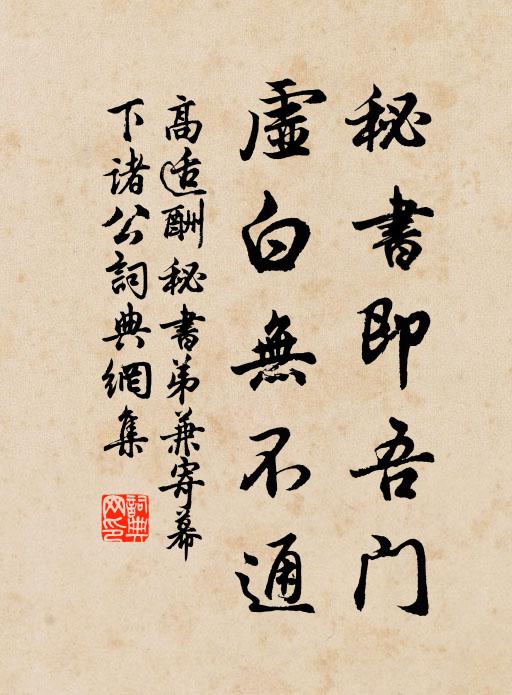 秘書即吾门
虛白無不通
高适酬秘書弟兼寄幕
下诸公詞典網集
詞典
网印